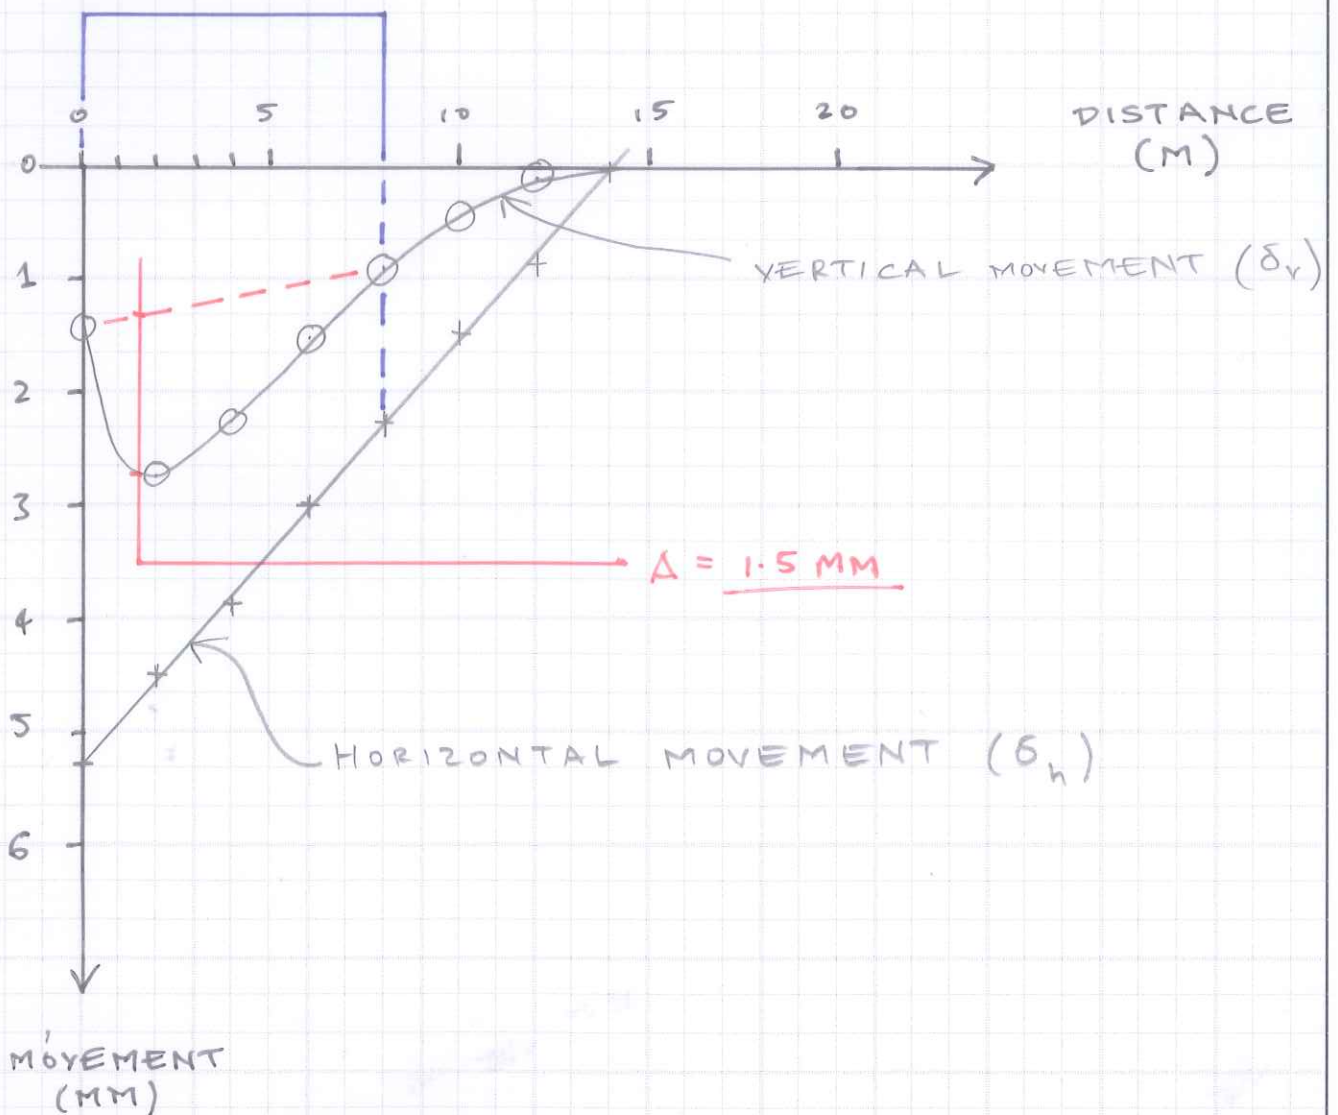 0 5 10 15 20
DISTANCE
(M)
0
1
VERTICAL MOVEMENT (δv)
2
3
Δ = 1.5 MM
4
5
HORIZONTAL MOVEMENT (δh)
6
MOVEMENT
(MM)